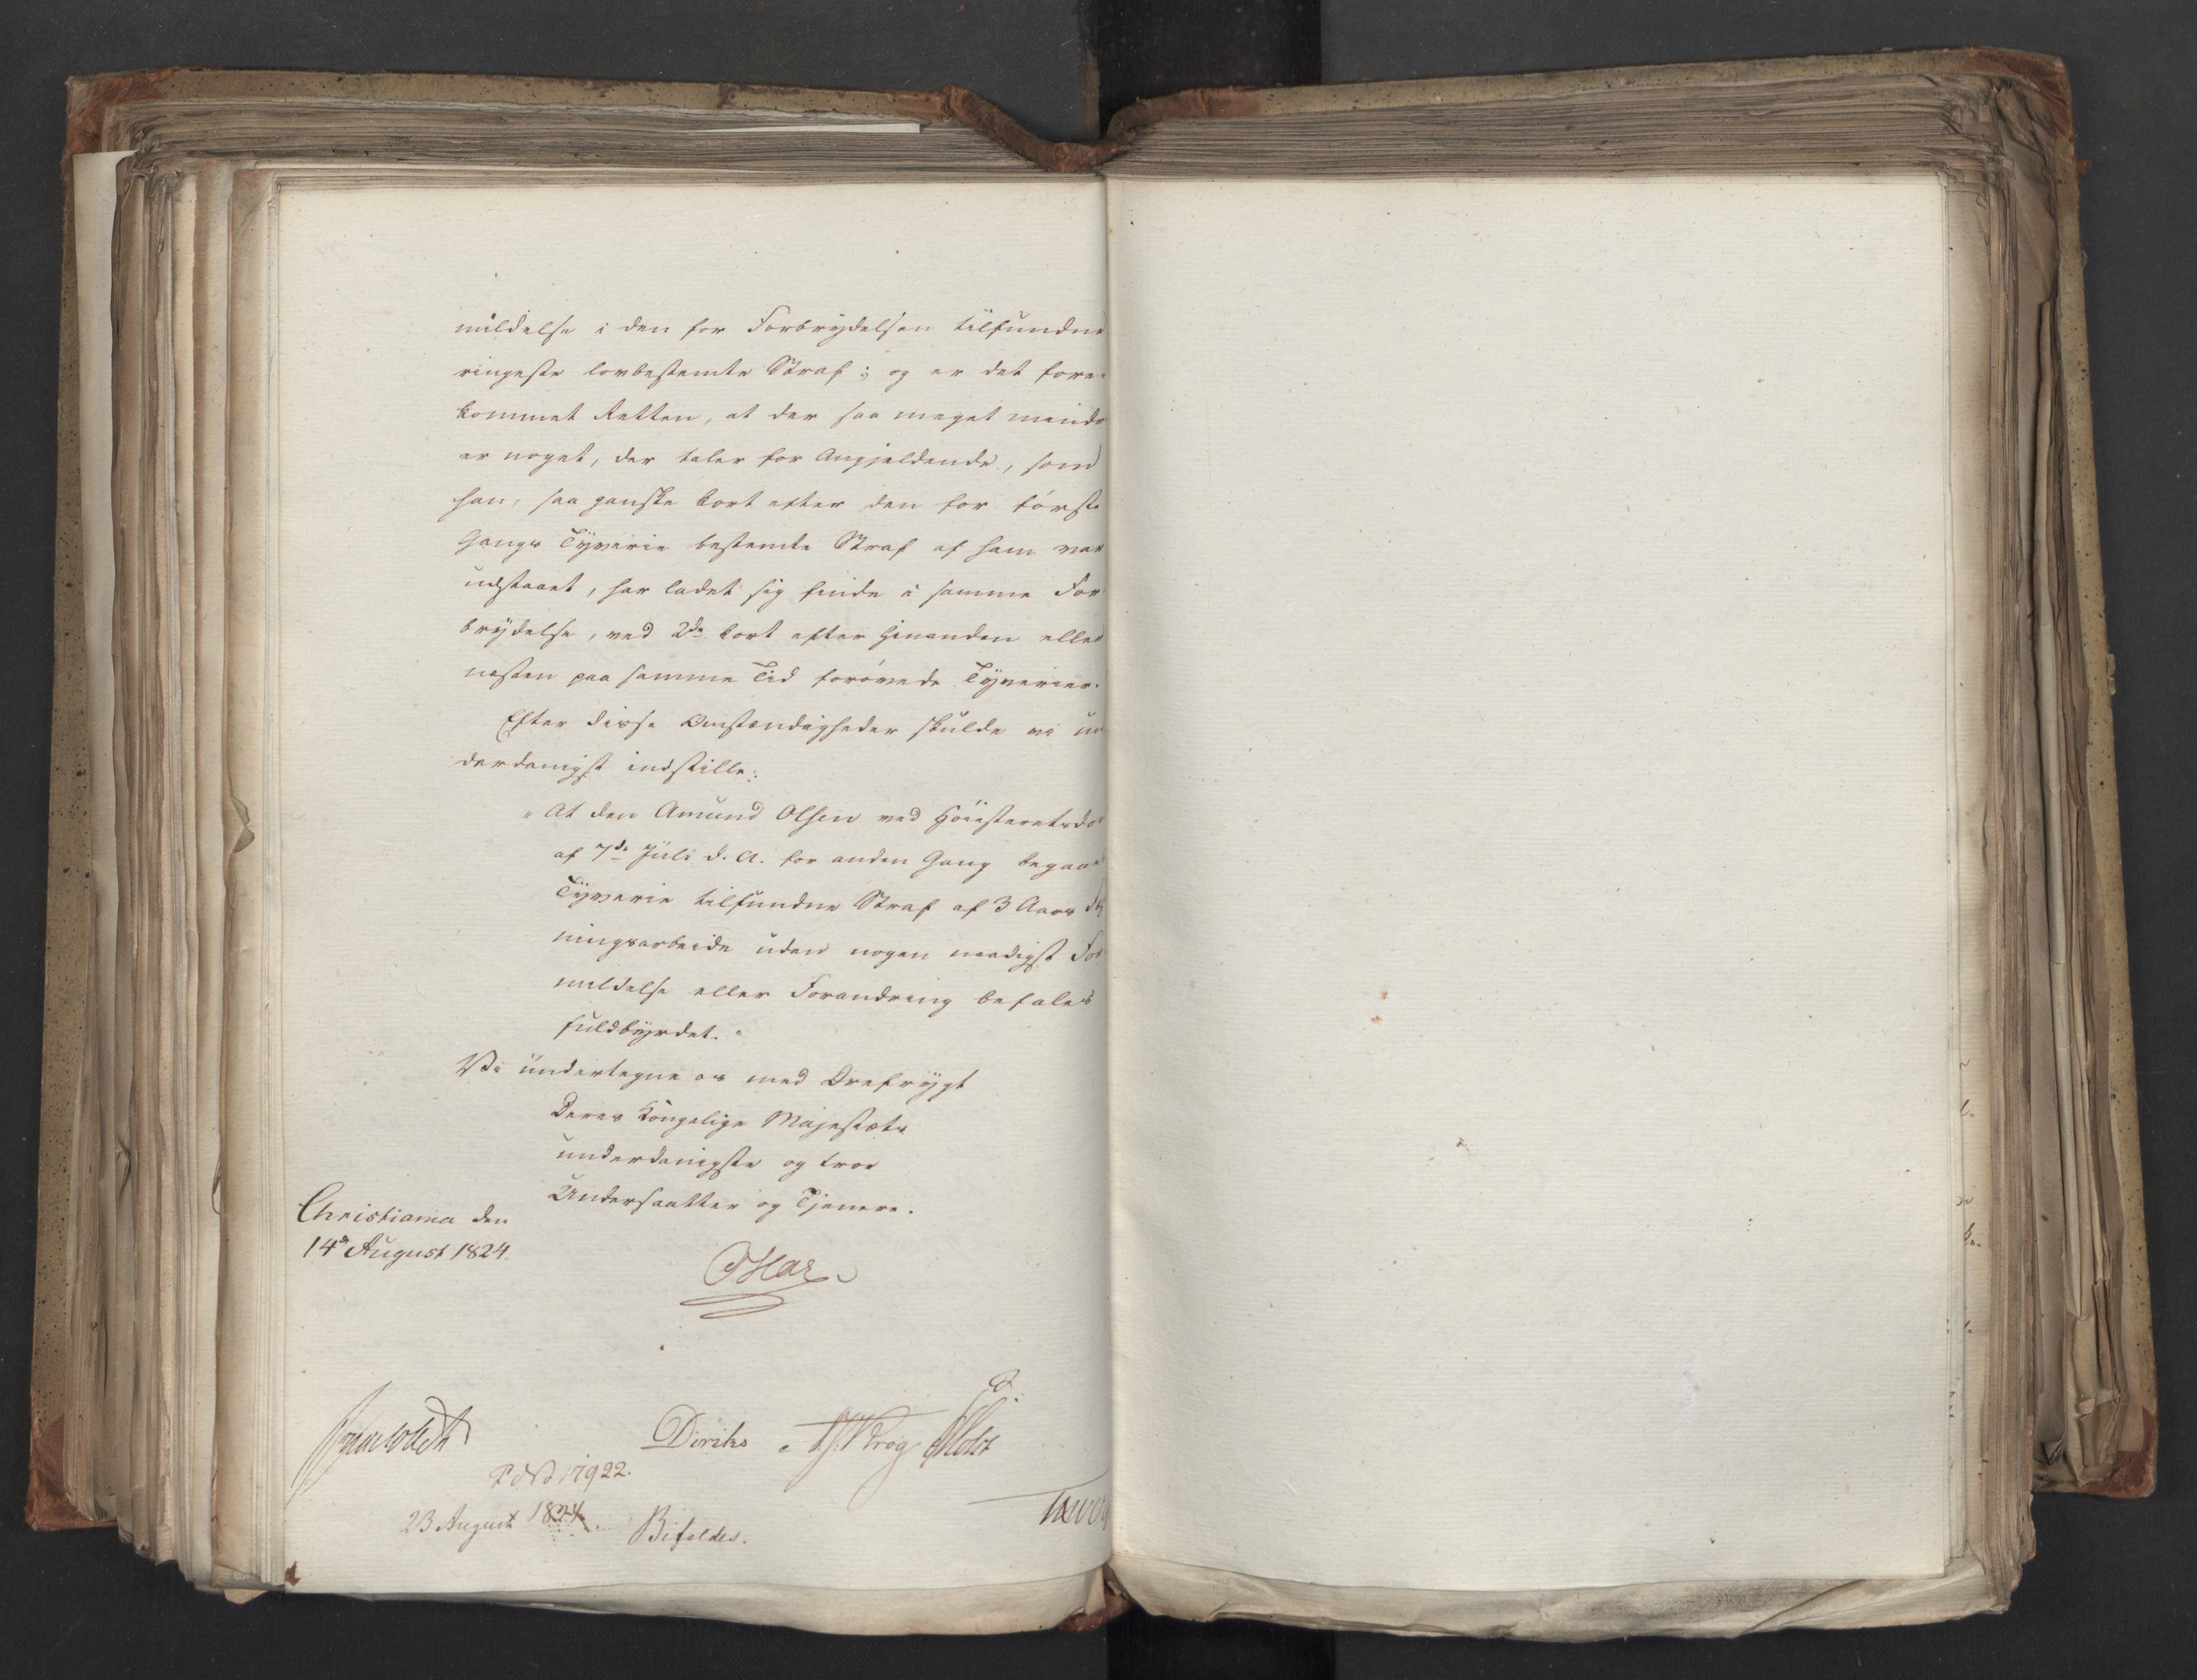 mildelse i den for Forbrydelsen tilfundne
ringeste lovbestemte Straf; og er det fore-
kommet Retten, at der saa meget mindr
er noget, der taler for Angjeldende, som
han, saa ganske kort efter den for første
Gangs Tyverie bestemte Straf af ham var
udstaaet, har ladet sig finde i samme For
brydelse, ved 2de kort efter hinanden eller
næsten paa samme Tid forøvede Tyverier.
Efter disse Omstændigheder skulde vi un
derdanigst indstille:
"At den Amund Olsen ved Høiesteretsdo
af 7de Juli d. A. for anden Gang begaae
Tyverie tilfundne Straf af 3 Aars
ningsarbeide uden nogen naadigst For
mildelse eller Forandring befales
fuldbyrdet."
Vi undertegne os med Ærefrygt
Deres Kongelige Majestæts
underdanigste og troe
Undersaatter og Tjenere.
Christiania den
14de August 1824.
Diriks Krog Holst
23 August 1824. Bifaldes.